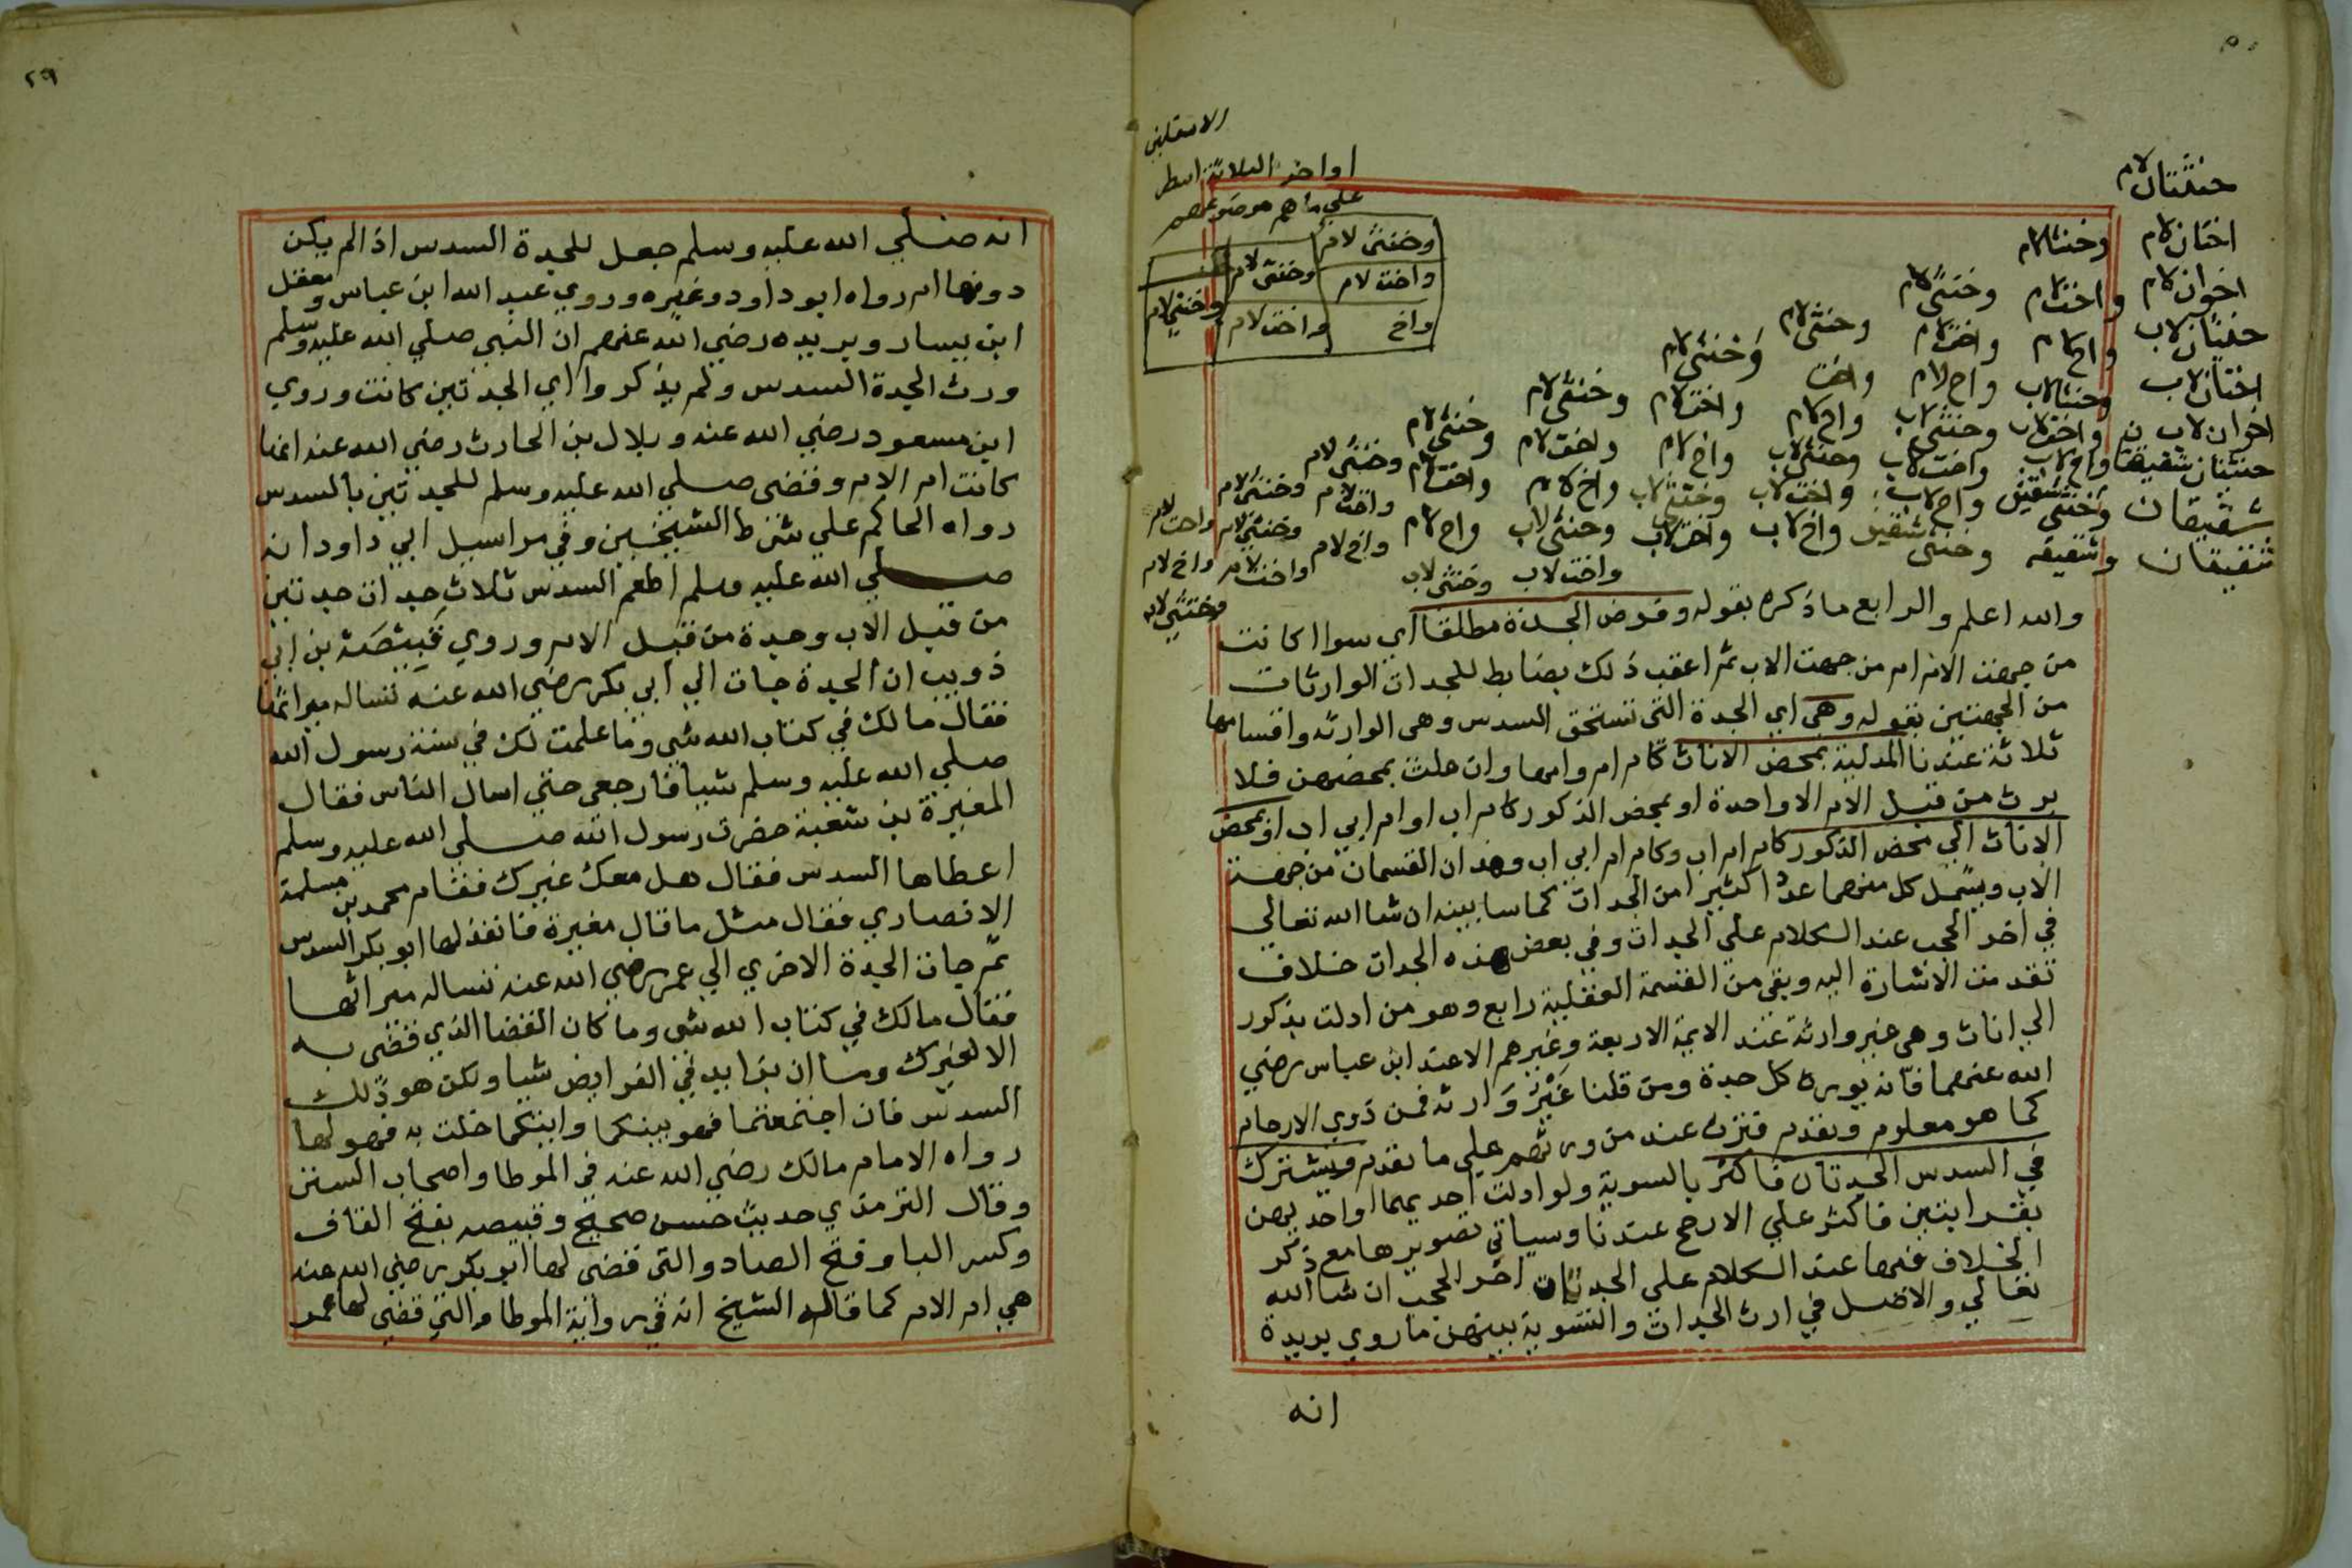 خنثتان لام
اختان لام وخنثى لام
اخوان لام واخت لام وخنثى لام
خنثتان لاب واخ لام واخت لام وخنثى لام
اختان لاب وخنثى لاب واخ لام واخت وخنثى لام
اخوان لاب واخت لاب وخنثى لاب واخ لام واخت لام وخنثى لام
خنثتان شقيقتان واخ لاب واخت لاب وخنثى لاب واخ لام واخت لام وخنثى لام
شقيقتان وخنثى شقيق واخ لاب واخت لاب وخنثى لاب واخ لام واخت لام وخنثى لام
شقيقان وشقيقه وخنثى شقيق واخ لاب واخت لاب وخنثى لاب واخ لام واخت لام وخنثى لام
واخت لاب وخنثى لاب
اواخر الثلاثة اسطر
على ما هم موضوعهم
وخنثى لام
واخت لام
واخ
وخنثى لام
واخت لام
وخنثى لام
والله اعلم والرابع ما ذكره بقوله وفرض الجدة مطلقا اي سواا كانت
من جهت الام ام من جهت الاب ثم اعقب ذلك بضابط للجدات الوارثات
من الجهتين بقوله وهي اي الجدة التي تستحق السدس وهى الوارثه واقسامها
ثلاثة عندنا المدلية بمحض الاناث كام ام وامها وان علت بمحضهن فلا
يرث من قبل الام الا واحدة او بمحض الذكور كام اب او ام ابي اب او بمحض
الاناث الي محض الذكور كام ام اب وكام ام ابي اب وهذان القسمان من جهة
الاب ويشمل كل منهما عددا كثيرا من الجدات كما سابينه ان شا الله تعالي
في اخر الحجب عند الكلام علي الجدات وفي بعض هذه الجدات خلاف
تقدمت الاشارة اليه وبقي من القسمة العقلية رابع وهو من ادلت بذكور
الي اناث وهي غير وارثة عند الايمة الاربعة وغيرهم الا عند ابن عباس رضي
الله عنهما فانه يورث كل جدة ومن قلنا غير وارثه فمن ذوي الارحام
كما هو معلوم وتقدم فتزث عند من ورثهم علي ما تقدم ويشترك
في السدس الجدتان فاكثر بالسوية ولو ادلت احديهما او احديهن
بقرابتين فاكثر علي الارجح عندنا وسياتي تصويرها مع ذكر
الخلاف فيها عند الكلام علي الجدتان اخر الحجب ان شا الله
تعالي والاصل في ارث الجدات والتسوية بينهن ما روي بريدة
انه
٢٩
انه صلي الله عليه وسلم جعل للجدة السدس اذا لم يكن
دونها ام رواه ابو داود وغيره وروي عبد الله ابن عباس ومعقل
ابن يسار وبريده رضي الله عنهم ان النبي صلي الله عليه وسلم
ورث الجدة السدس ولم يذكروا اي الجدتين كانت وروي
ابن مسعود رضي الله عنه وبلال بن الحارث رضي الله عنه انها
كانت ام الام وقضى صلي الله عليه وسلم للجدتين بالسدس
رواه الحاكم علي شرط الشيخين وفي مراسيل ابي داود انه
صلي الله عليه وسلم اطعم السدس ثلاث جدات جدتين
من قبل الاب وجدة من قبل الام وروي قبيصة بن ابي
ذويب ان الجدة جات الي ابي بكر رضي الله عنه تساله ميراثها
فقال مالك في كتاب الله شي وما علمت لك في سنة رسول الله
صلي الله عليه وسلم شيا فارجعي حتي اسال الناس فقال
المغيرة بن شعبة حضرت رسول الله صلي الله عليه وسلم
اعطاها السدس فقال هل معك غيرك فقام محمد بن مسلمة
الانصاري فقال مثل ما قال مغيرة فانفذ لها ابو بكر السدس
ثم جات الجدة الاخري الي عمر رضي الله عنه تساله ميراثها
فقال مالك في كتاب الله شي وما كان القضا الذي قضى به
الا لغيرك وما ان بزايد في الفرايض شيا ولكن هو ذلك
السدس فان اجتمعتما فهو بينكما وايتكما خلت به فهو لها
رواه الامام مالك رضي الله عنه في الموطا واصحاب السنن
وقال الترمذي حديث حسن صحيح وقبيصه بفتح القاف
وكسر البا وفتح الصاد والتي قضى لها ابو بكر رضي الله عنه
هي ام الام كما قاله الشيخ انه في رواية الموطا والتي قضي لها عمر